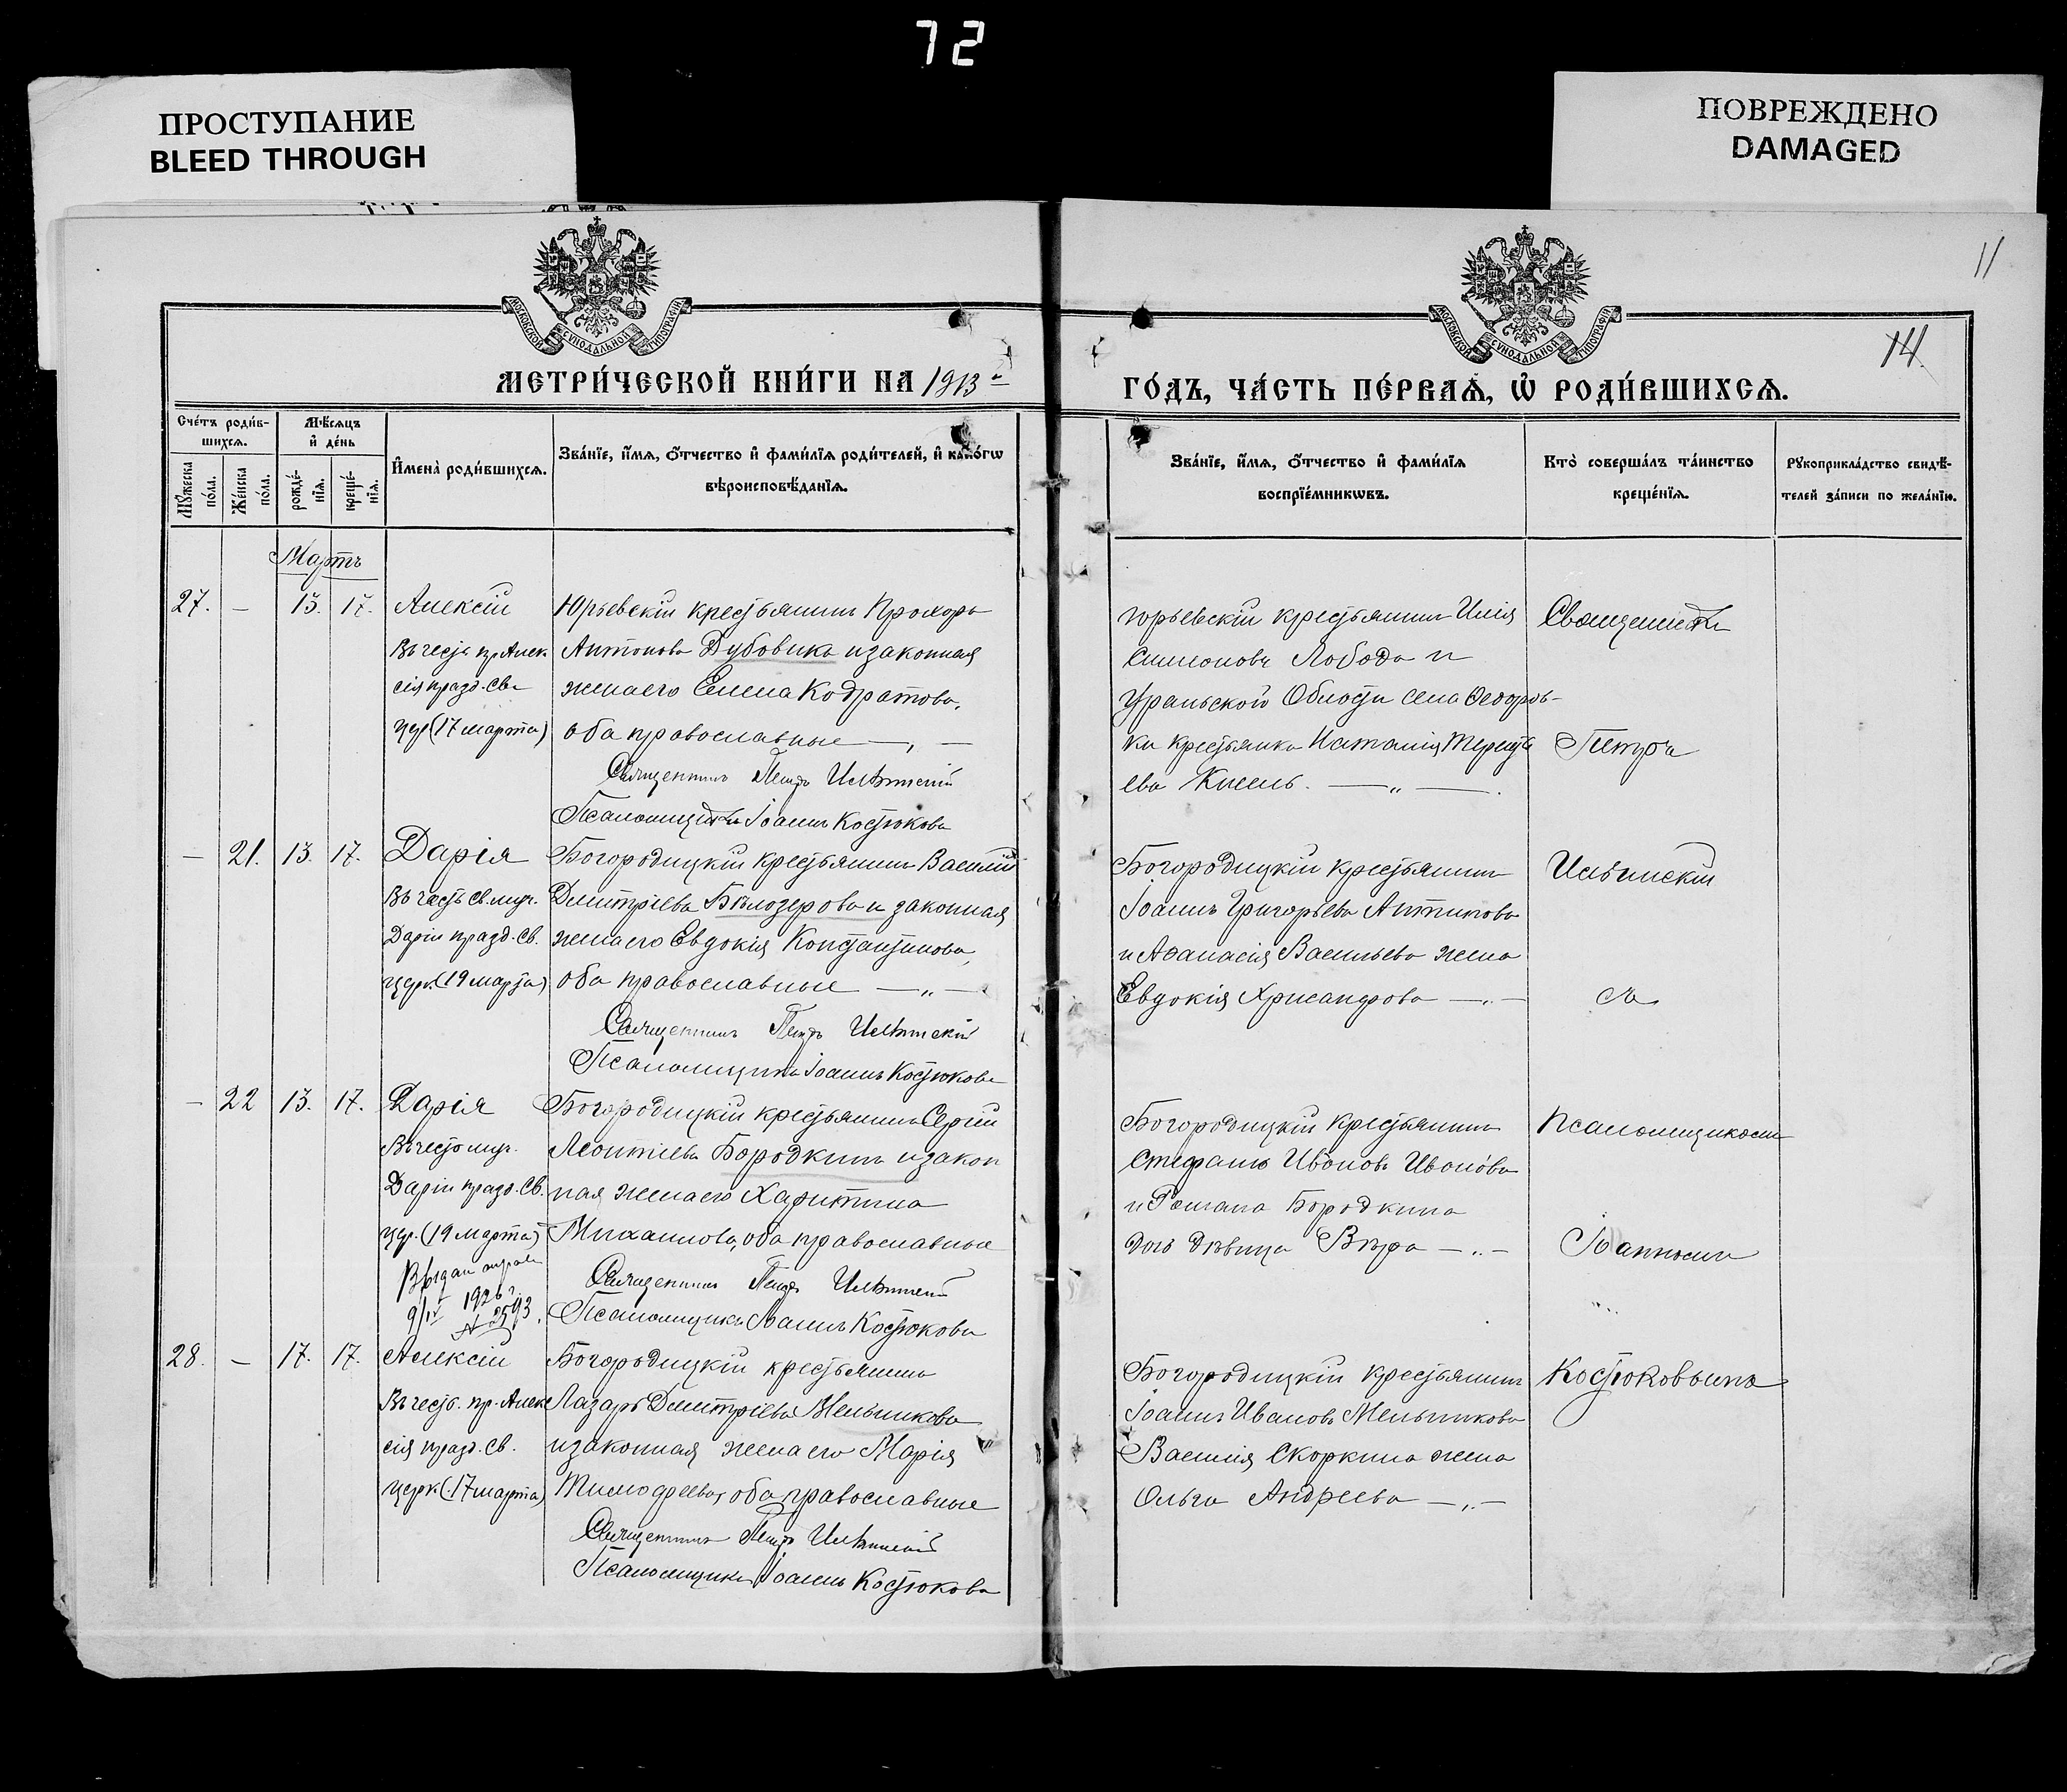 72
ПРОСТУПАНИЕ
BLEED THROUGH
ПОВРЕЖДЕНО
DAMAGED
11
14
МОСКОВСКОЙ СѴНОДАЛЬНОЙ ТИПОГРАФІИ
МОСКОВСКОЙ СѴНОДАЛЬНОЙ ТИПОГРАФІИ
МЕТРИ́ЧЕСКОЙ КНИ́ГИ НА 1913
ГО́ДЪ, ЧА́СТЬ ПЕ́РВАѦ, Ѡ҆ РОДИ́ВШИХСѦ.
Сче́тъ роди́в-
шихсѧ.
Мꙋ́жеска по́ла.
Же́нска по́ла.
Мѣ́сѧцъ
и҆ де́нь
рожде́-
нїѧ.
креще́-
нїѧ.
И҆мена̀ роди́вшихсѧ.
Зва́нїе, и҆́мѧ, ѻ҆́тчество и҆ фами́лїѧ роди́телей, и҆ како́гѡ
вѣроисповѣ́данїѧ.
Зва́нїе, и҆́мѧ, ѻ҆́тчество и҆ фами́лїѧ
воспрїе́мникѡвъ.
Кто̀ соверша́лъ та́инство
креще́нїѧ.
Рꙋкоприкла́дство свидѣ́-
телей за́писи по жела́нїю.
Мартъ
27. — 13. 17. Алексій
Въ честь пр. Алек
сія празд. Св.
цер. (17 марта)
Юрьевскій крестьянинъ Прохоръ
Антоновъ Дубовика и законная
жена его Елена Кодратова,
оба православные — „ —
Священникъ Петръ Ильинскій
Псаломщикъ Іоаннъ Костюковъ
Юрьевскій крестьянинъ Илія
Симеоновъ Лобода и
Уральской Области села Ѳеодоров-
ки крестьянка Наталія Теренть
ева Кисель. — „ — .
Священникъ
Петръ
— 21. 13. 17. Дарія
Въ честь Св. муч.
Даріи празд. Св.
церк. (19 марта)
Богородицкій крестьянинъ Василій
Димитріевъ Бѣлозеровъ и законная
жена его Евдокія Константинова,
оба православные — „ —
Священникъ Петръ Ильинскій
Псаломщикъ Іоаннъ Костюковъ
Богородицкій крестьянинъ
Іоаннъ Григорьевъ Антиповъ
и Аѳанасія Васильева жена
Евдокія Хрисанфова — „ —
Ильинскій
съ
— 22 13. 17. Дарія
Въ честь муч.
Даріи празд. Св.
цер. (19 марта)
Выдан
9/IV 1926 г.
№ 2593.
Богородицкій крестьянинъ Сергій
Леонтіевъ Бородкинъ и закон
ная жена его Харитина
Михаилова, оба православные
Священникъ Петръ Ильинскій
Псаломщикъ Іоаннъ Костюковъ
Богородицкій крестьянинъ
Стефанъ Ивановъ Ивановъ
и Романа Бородкина
дочь дѣвица Вѣра — „ —
Псаломщикомъ
Іоанномъ
28. — 17. 17. Алексій
Въ честь. пр. Алек
сія празд. Св.
церк. (17 марта)
Богородицкій крестьянинъ
Лазарь Димитріевъ Мельниковъ
и законная жена его Марія
Тимофеева, оба православные
Священникъ Петръ Ильинскій
Псаломщикъ Іоаннъ Костюковъ
Богородицкій крестьянинъ
Іоаннъ Ивановъ Мельниковъ
Василія Скоркина жена
Ольга Андреева — „ —
Костюковымъ